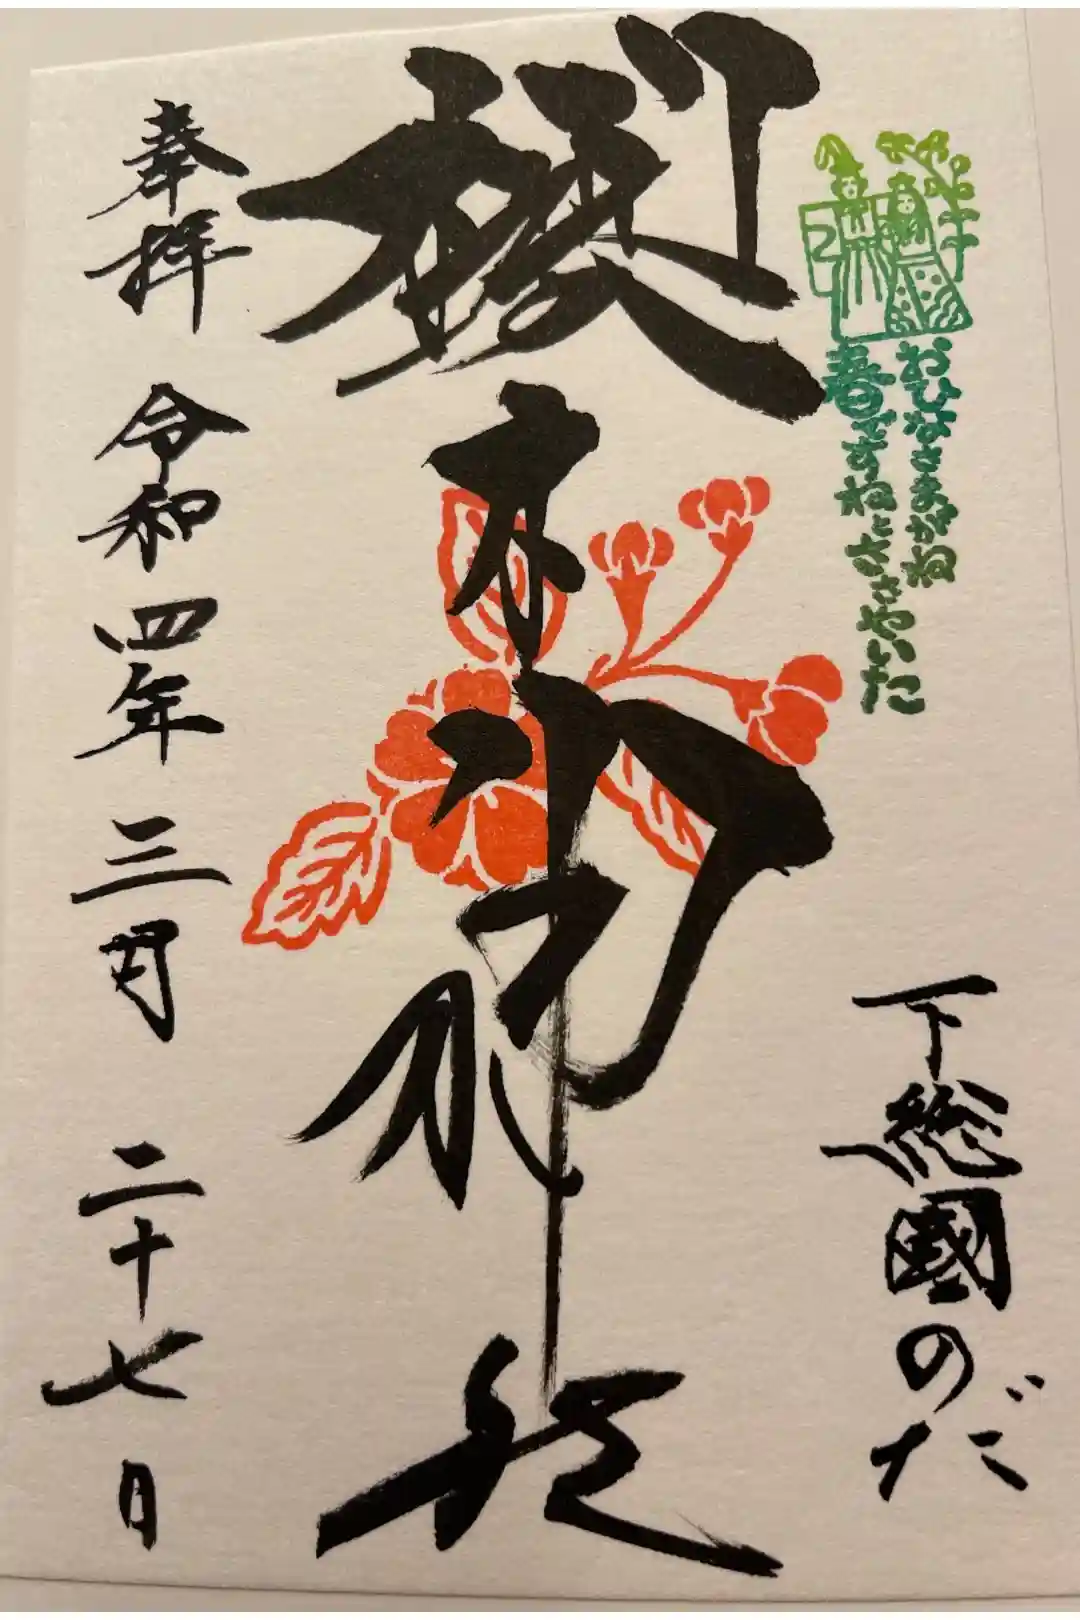 おひなさまがね
春ですねとささやいた
下総國のだ
櫻木神社
奉拝 令和四年 三月 二十七日